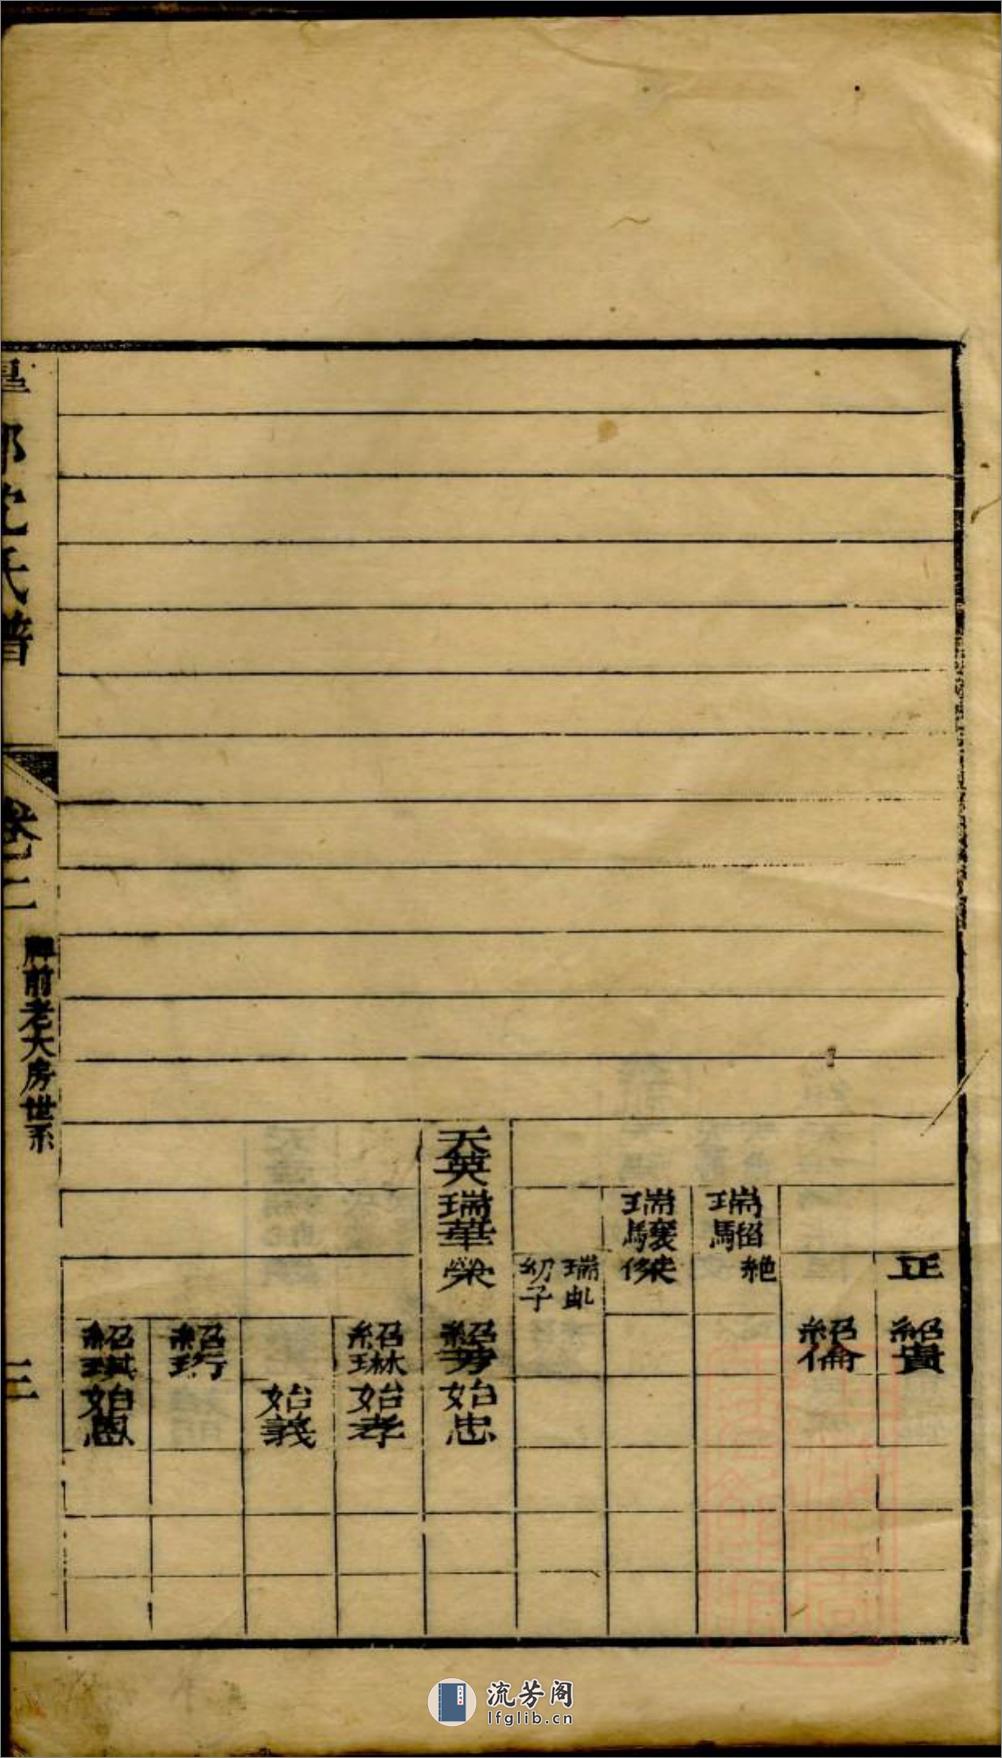 正
紹貴
紹倫
瑞騮
絶
瑞驤
榮傑
瑞虬
幼子
天英
瑞華
榮
紹芳
始忠
紹琳
始孝
始義
紹珩
紹琪
始恩
沈氏譜
卷二
牌前老大房世系
三
流芳阁
lfglib.cn